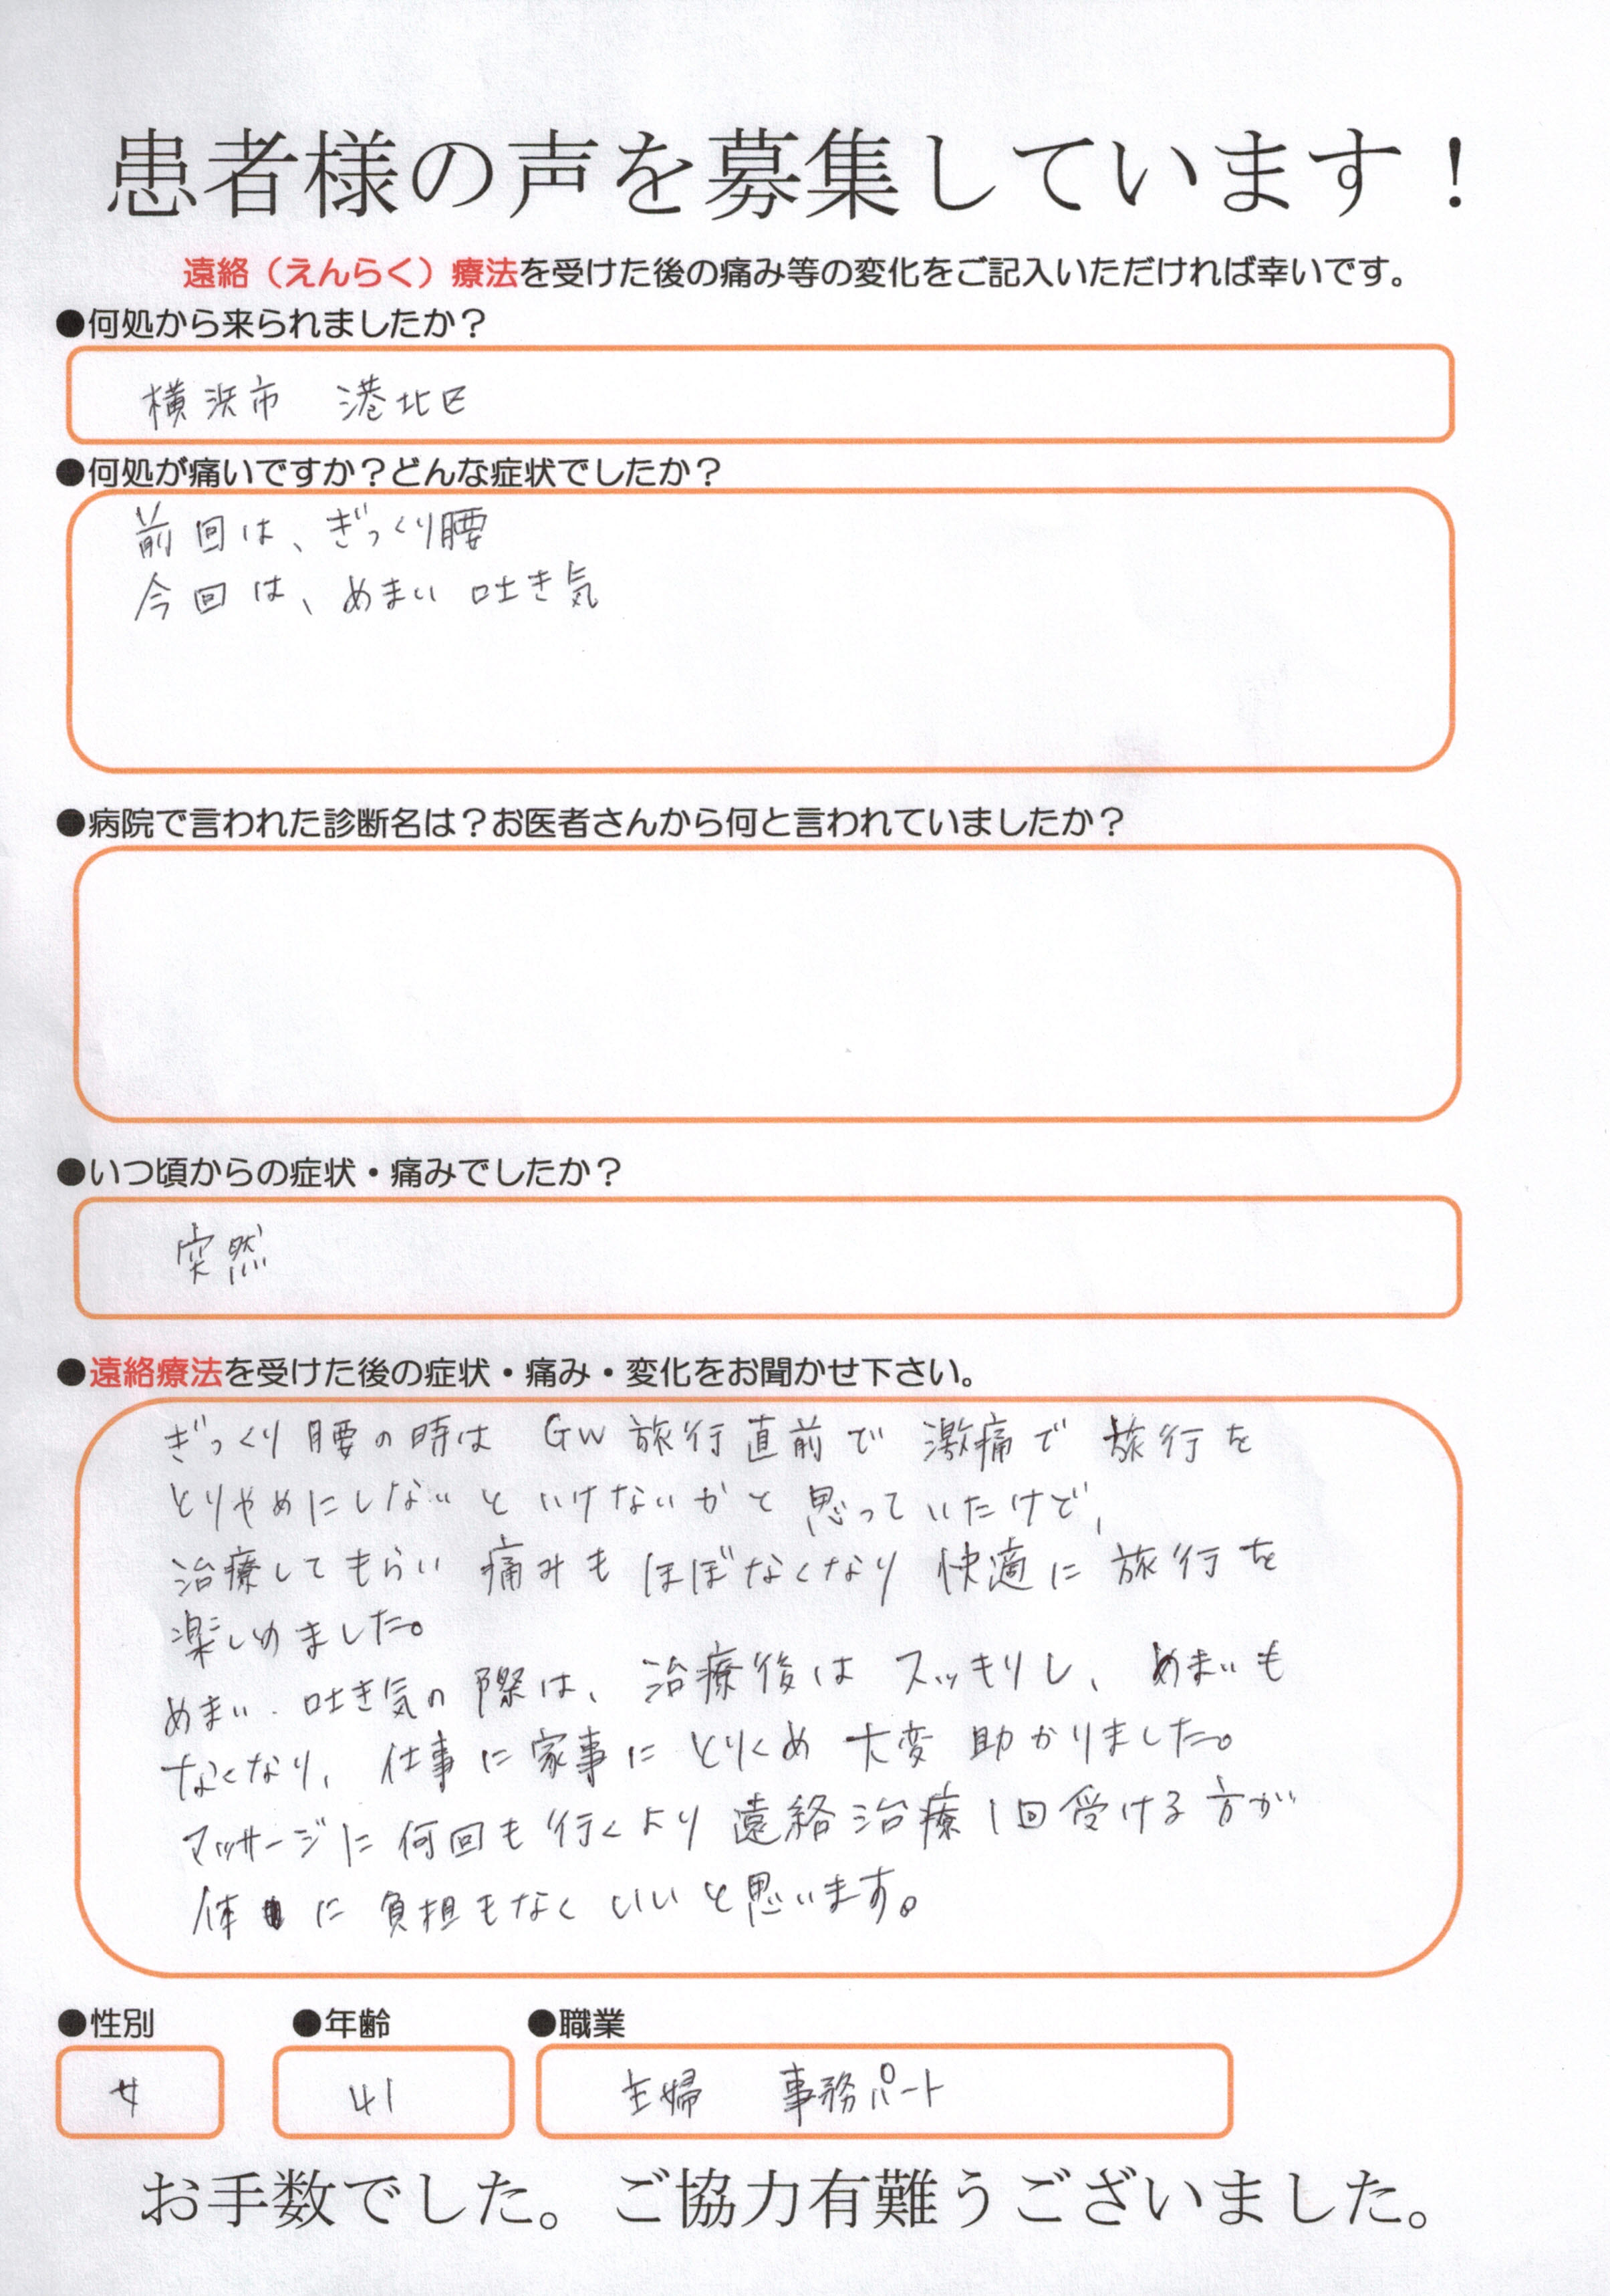 患者様の声を募集しています！
遠絡（えんらく）療法を受けた後の痛み等の変化をご記入いただければ幸いです。
●何処から来られましたか？
横浜市 港北区
●何処が痛いですか？どんな症状でしたか？
前回は、ぎっくり腰
今回は、めまい 吐き気
●病院で言われた診断名は？お医者さんから何と言われていましたか？
●いつ頃からの症状・痛みでしたか？
突然
●遠絡療法を受けた後の症状・痛み・変化をお聞かせ下さい。
ぎっくり腰の時は GW旅行直前で 激痛で 旅行を
とりやめにしないと いけないかと 思っていたけど、
治療してもらい 痛みも ほぼなくなり 快適に 旅行を
楽しめました。
めまい、吐き気の際は、治療後は スッキリし、めまいも
なくなり、仕事に家事に とりくめ 大変 助かりました。
マッサージに 何回も行くより 遠絡治療1回受ける方が
体に 負担もなく いいと思います。
●性別 ●年齢 ●職業
女 41 主婦 事務パート
お手数でした。ご協力有難うございました。